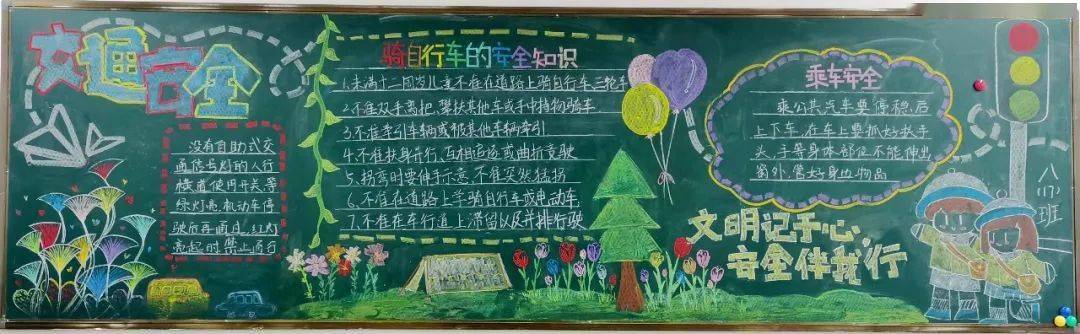 交通安全
没有自助式交
通信号划的人行
横道使用开关等
绿灯亮、机动车停
驶后再通过,红灯
亮起时禁止通行
骑自行车的安全知识
1.未满十二周岁儿童不准在道路上骑自行车、三轮车
2.不准双手离把,攀扶其他车或手中持物骑车
3.不准牵引车辆或被其他车辆牵引
4.不准扶身并行、互相追逐或曲折竞驶
5、拐弯时要伸手示意不准突然猛拐
6.不准在道路上学骑自行车或电动车
7.不准在车行道上滞留以及并排行驶
乘车安全
乘公共汽车要停稳后
上下车,在车上要抓好扶手
头、手等身体部位不能伸出
窗外,管好身边物品
文明记于心,
安全伴我行
八(1)班